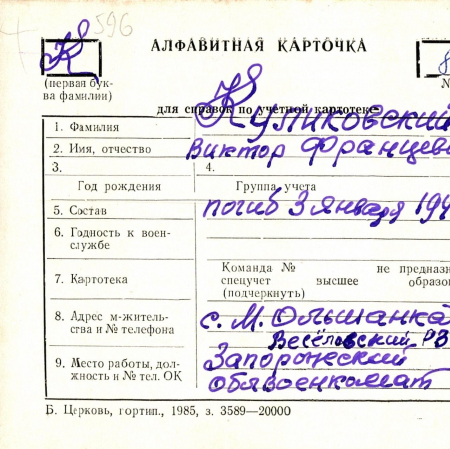 596
К
АЛФАВИТНАЯ КАРТОЧКА
8
(первая бук-
ва фамилии)
№
для справок по учетной картотеке
1. Фамилия Куликовский
2. Имя, отчество Виктор Францев
3. 4.
Год рождения Группа учета
5. Состав погиб 3 января 194
6. Годность к воен-
службе
7. Картотека Команда № не предназн
спецучет высшее образо
(подчеркнуть)
8. Адрес м-житель- с. М. Ольшанка
ства и № телефона Весёловский РВ
9. Место работы, дол- Запорожский
жность и № тел. ОК облвоенкомат
Б. Церковь, гортип., 1985, з. 3589—20000